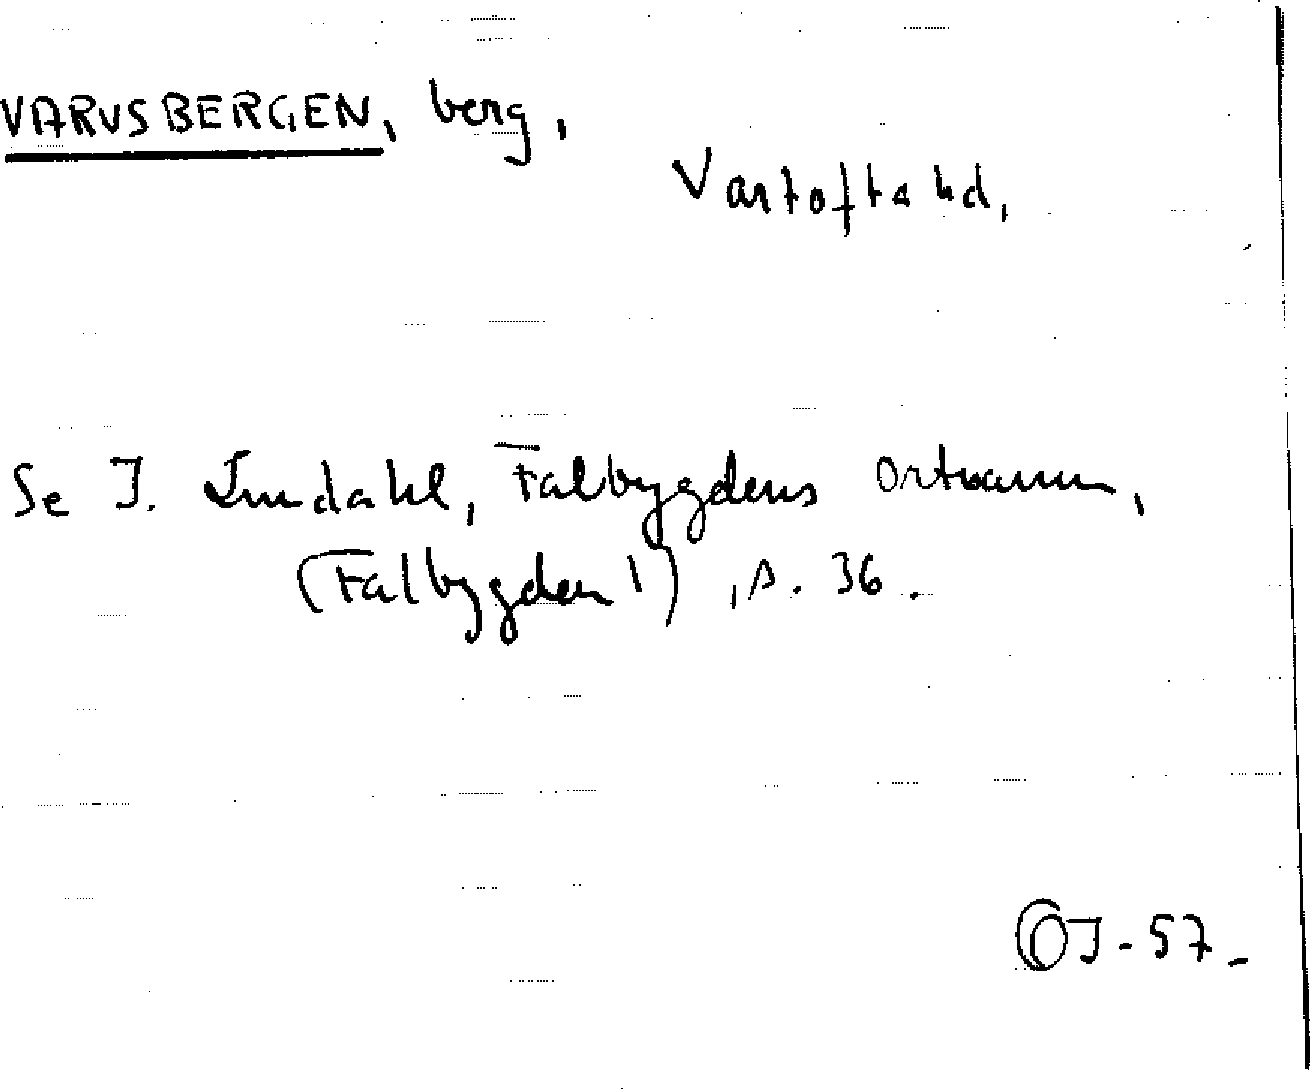 VARVSBERGEN, berg,
Vartofta hd,
Se I. Lundahl, Falbygdens Ortnamn,
(Falbygden 1), s. 36.
OJ-57-